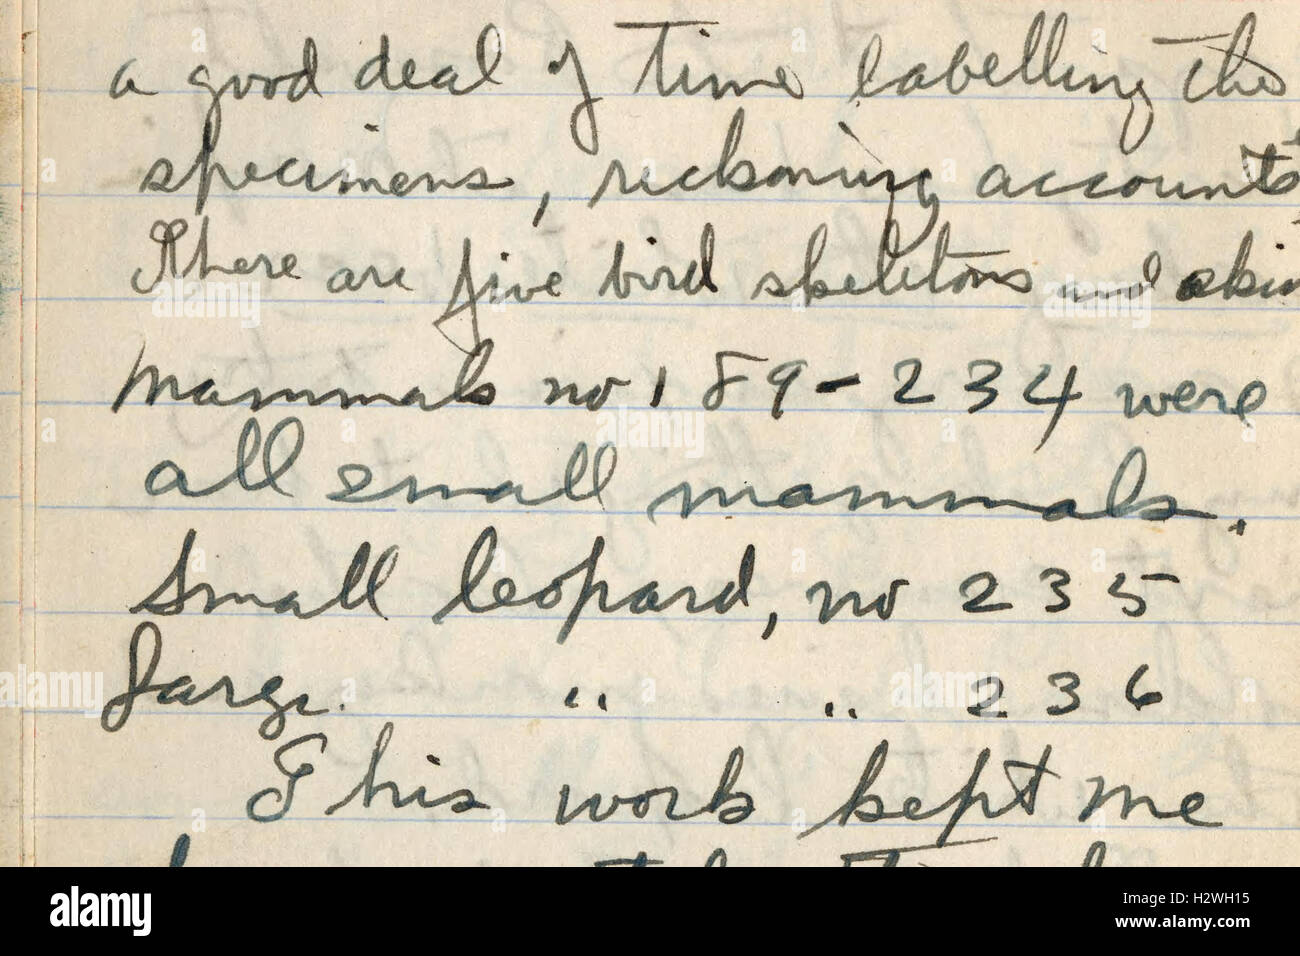 a good deal of time labelling the
specimens, reckoning accounts
There are five bird skeletons and skin
Mammals no 189-234 were
all small mammals.
Small leopard, no 235
Large " " 236
This work kept me
alamy
Image ID: H2WH15
www.alamy.com